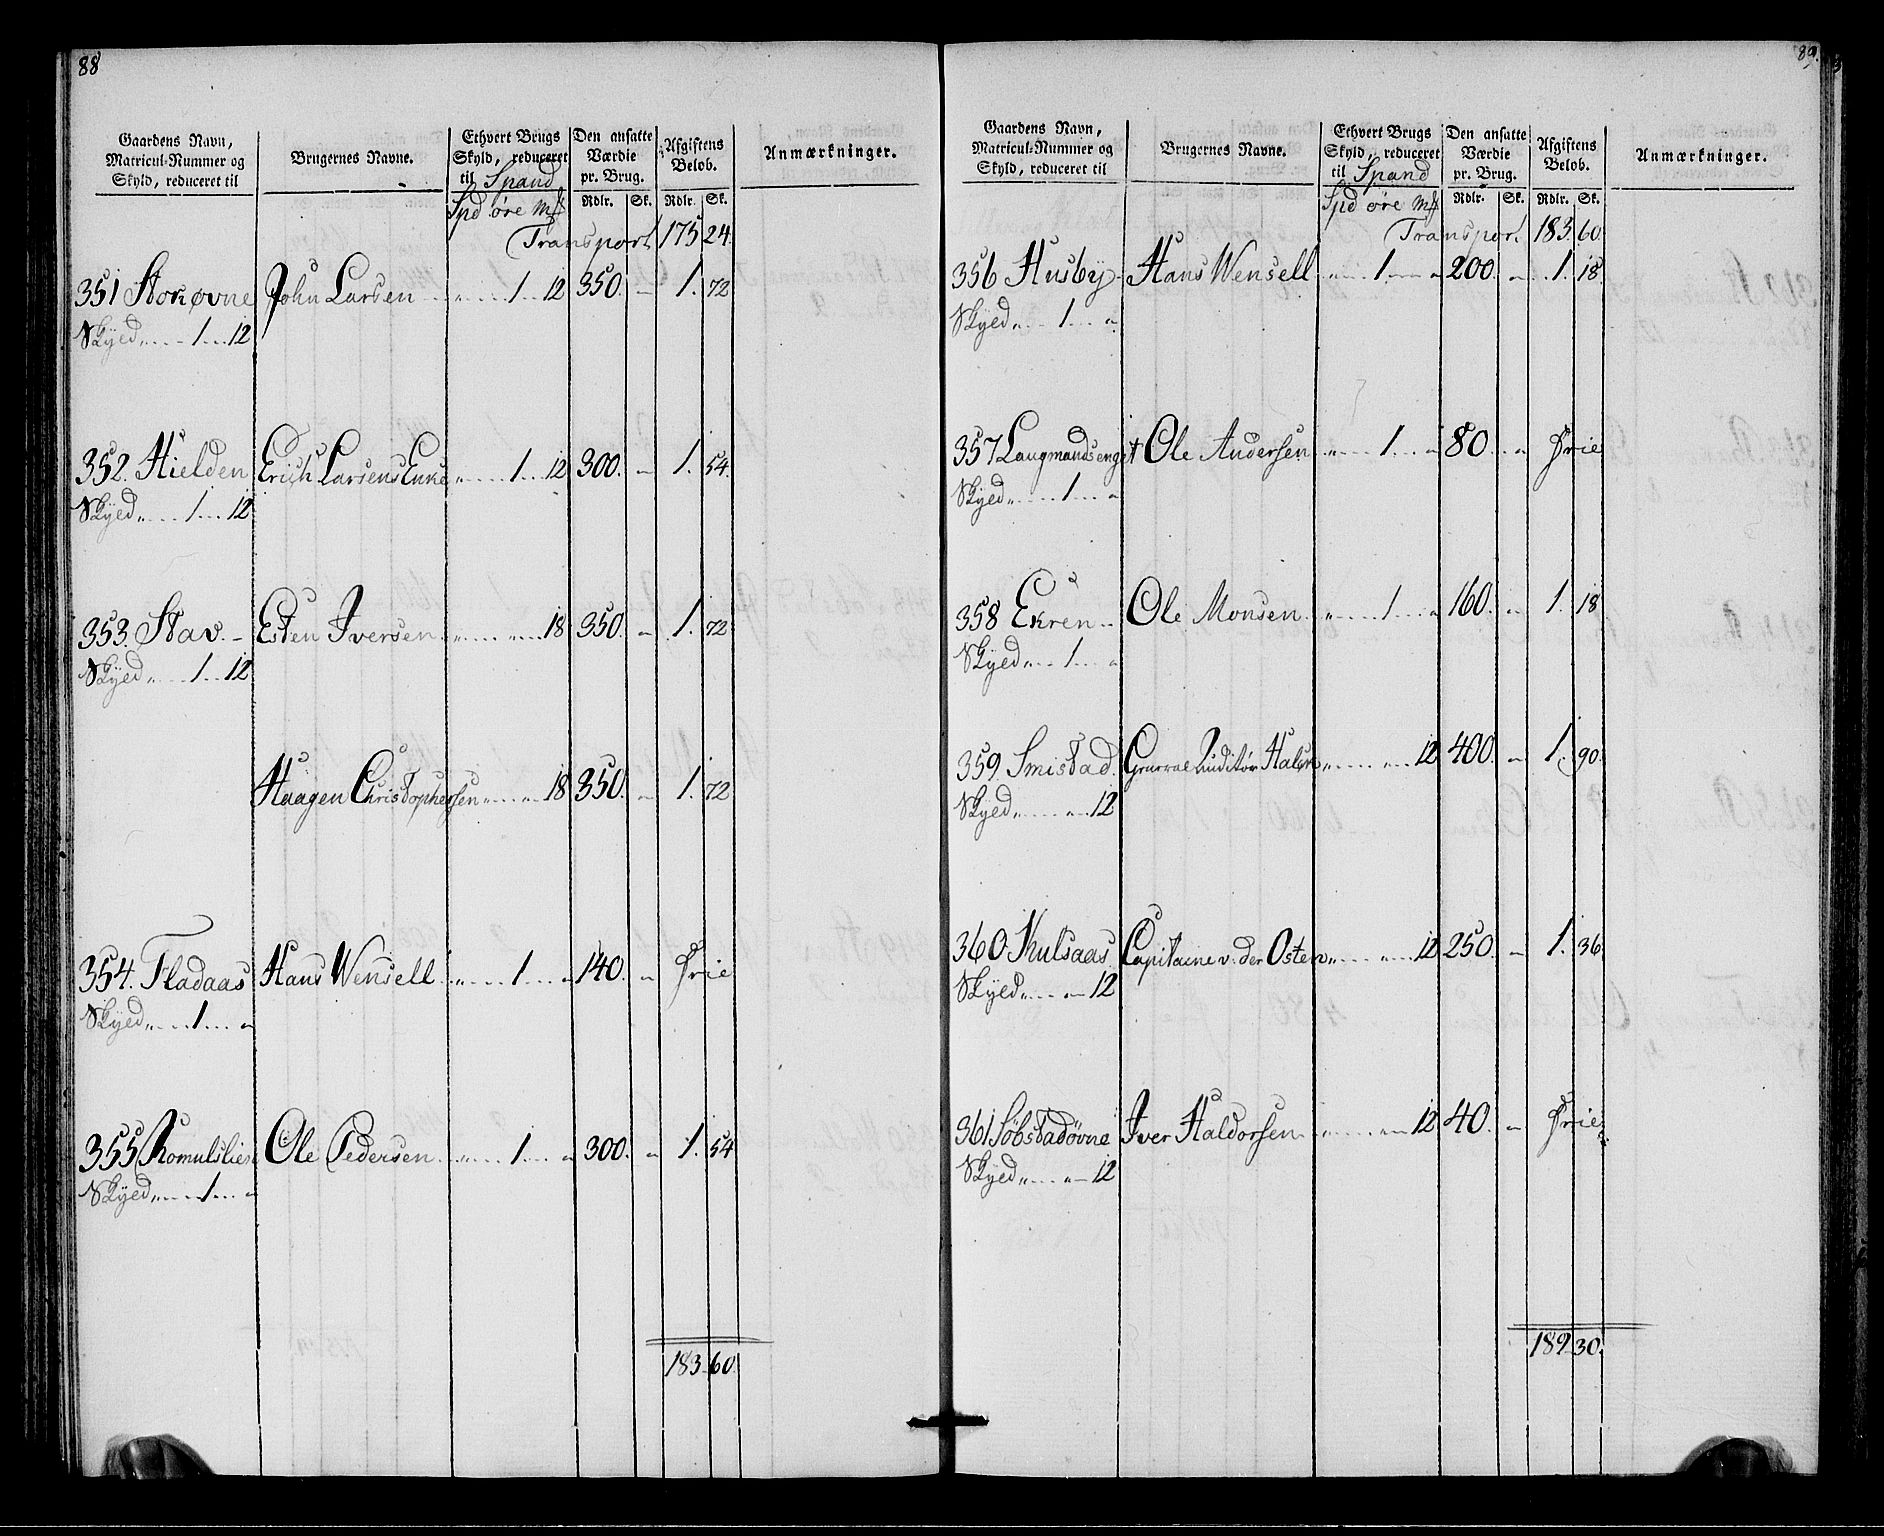 88
Gaardens Navn, Matricul-Nummer og Skyld, reduceret til | Brugernes Navne. | Ethvert Brugs Skyld, reduceret til Spand | Den ansatte Værdie pr. Brug. | Afgiftens Beløb. | Anmærkninger.
Spd øre Mk | Rdlr. | Sk. | Rdlr. | Sk.
Transport 175 24.
351 Storøvne John Larsen „ 1 12 350. „ 1. 72
Skyed „ 1 12
352. Hielden Erich Larsens Enke „ 1 12 300. „ 1. 54.
Skyed „ 1 12
353. Stav. Esten Iversen „ „ 18 350. „ 1. 72
Skyed „ 1 12
Haagen Christophersen „ „ 18 350. „ 1. 72
354. Fladaas Hans Wensell „ 1 „ 140. „ Frie
Skyed „ 1 „
355 Romulslien Ole Pedersen „ 1 „ 300. „ 1. 54
Skyed „ 1 „
183 60.
89.
Gaardens Navn, Matricul-Nummer og Skyld, reduceret til | Brugernes Navne. | Ethvert Brugs Skyld, reduceret til Spand | Den ansatte Værdie pr. Brug. | Afgiftens Beløb. | Anmærkninger.
Spd øre Mk | Rdlr. | Sk. | Rdlr. | Sk.
Transport 183. 60.
356 Husbÿ Hans Wensell „ 1 „ 200. „ 1. 18.
Skyed „ 1 „
357 Laugmandsenget Ole Andersen „ 1 „ 80 „ Frie
Skyed „ 1 „
358 Ekren Ole Monsen „ 1 „ 160. „ 1. 18
Skyed „ 1 „
359. Smistad. General Auditør „ „ 12 400. „ 1. 90.
Skyed „ „ 12
360. Kulsaas Capitaine v. der Osten „ „ 12 250. „ 1. 36
Skyed „ „ 12
361 Søbstadøvne Iver Haldorsen „ „ 12 40. „ Frie
Skyed „ „ 12
189 30.